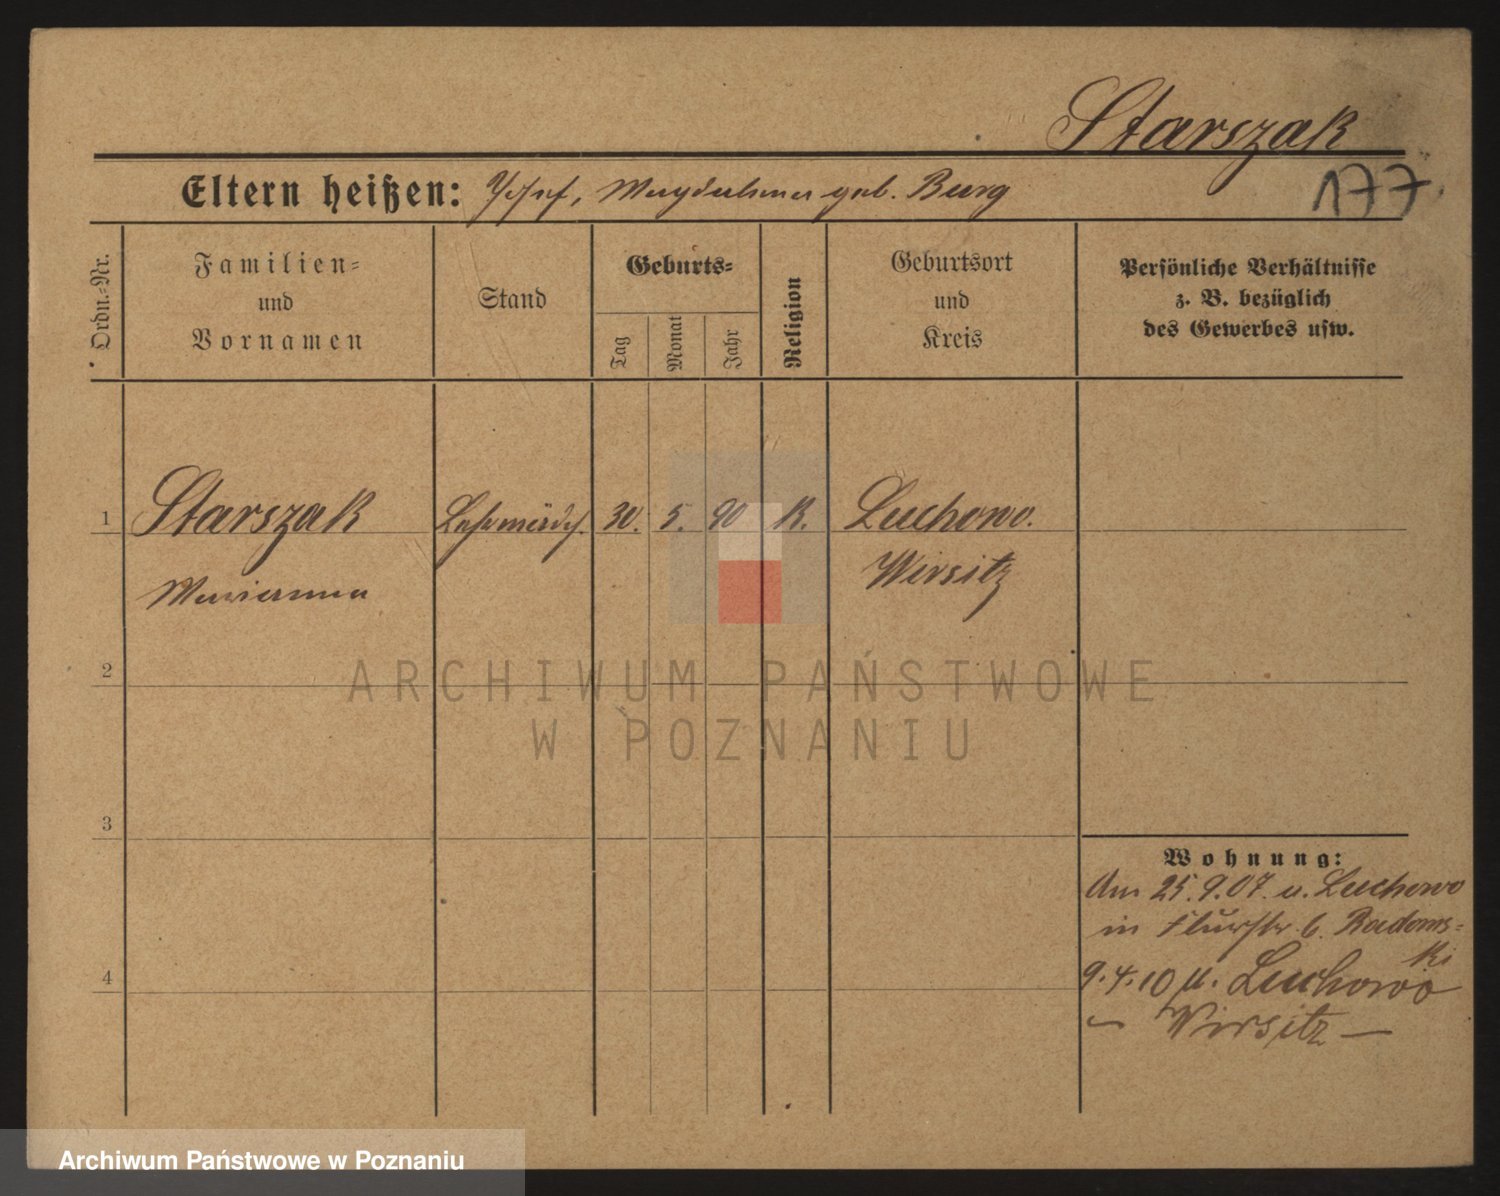 Starszak
177.
Eltern heißen: Josef, Magdalena geb. Burg
Ordn.-Nr.
Familien-
und
Vornamen
Stand
Geburts-
Tag
Monat
Jahr
Religion
Geburtsort
und
Kreis
Persönliche Verhältnisse
z. B. bezüglich
des Gewerbes usw.
1 Starszak Lehrmädch. 30. 5. 90 K. Luchowo.
Marianna Wirsitz
2
3
4
Wohnung:
Am 25.9.07. v. Luchowo
in Flurstr. b. Radoms=
ki
9.4.10 n. Luchowo
– Wirsitz –
ARCHIWUM PAŃSTWOWE
W POZNANIU
Archiwum Państwowe w Poznaniu